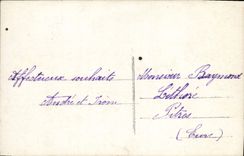 Affectueux souhaits
André et Irène
Monsieur Raymond
Pitres
(Eure)